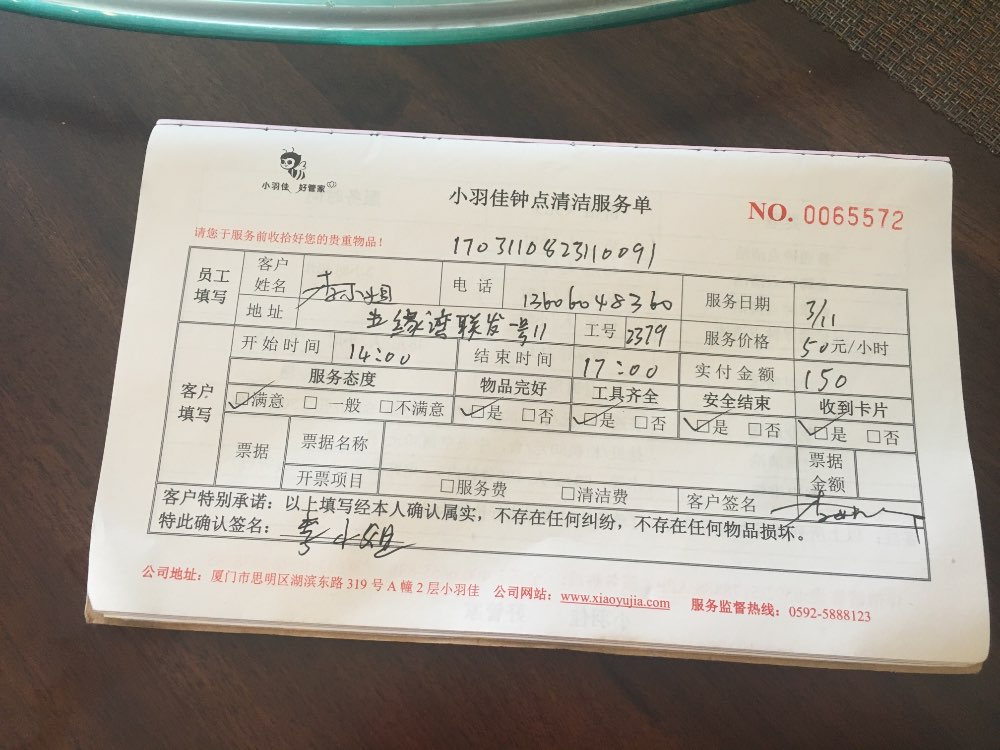 小羽佳 好管家
小羽佳钟点清洁服务单
NO. 0065572
请您于服务前收拾好您的贵重物品！
1703110823110091
员工填写 客户姓名 李小姐 电话 13606048360 服务日期 3/11
地址 五缘湾联发一号11 工号 2379 服务价格 50元/小时
客户填写 开始时间 14:00 结束时间 17:00 实付金额 150
服务态度 物品完好 工具齐全 安全结束 收到卡片
☑满意 □一般 □不满意 ☑是 □否 ☑是 □否 ☑是 □否 ☑是 □否
票据 票据名称 票据金额
开票项目 □服务费 □清洁费 客户签名
客户特别承诺：以上填写经本人确认属实，不存在任何纠纷，不存在任何物品损坏。
特此确认签名： 李小姐
公司地址：厦门市思明区湖滨东路 319 号 A 幢 2 层小羽佳 公司网站：www.xiaoyujia.com 服务监督热线：0592-5888123